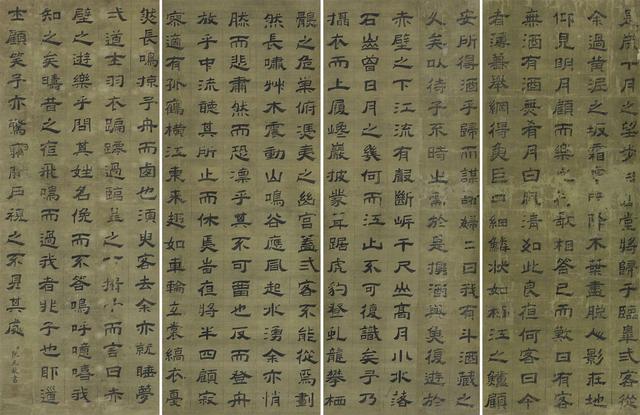 是歲十月之望步自雪堂將歸于臨皋二客從
余過黃泥之坂霜露既降木葉盡脫人影在地
仰見明月顧而樂之行歌相答已而歎曰有客
無酒有酒無肴月白風清如此良夜何客曰今
者薄暮舉網得魚巨口細鱗狀如松江之鱸顧
安所得酒乎歸而謀諸婦二曰我有斗酒藏之
久矣以待子不時之需於是攜酒與魚復遊於
赤壁之下江流有聲斷岸千尺山高月小水落
石出曾日月之幾何而江山不可復識矣予乃
攝衣而上履巉巖披蒙茸踞虎豹登虬龍攀栖
鶻之危巢俯馮夷之幽宮蓋弍客不能從焉劃
然長嘯艸木震動山鳴谷應風起水湧余亦悄
然而悲肅然而恐凛乎其不可留也反而登舟
放乎中流聽其所止而休焉時夜將半四顧寂
寥適有孤鶴橫江東來翅如車輪玄裳縞衣戛
然長鳴掠予舟而西也須臾客去余亦就睡夢
弍道士羽衣蹁躚過臨皋之下揖余而言曰赤
壁之遊樂乎問其姓名俛而不答嗚呼噫嘻我
知之矣疇昔之夜飛鳴而過我者非子也耶道
士顧笑予亦驚寤啟戶視之不見其處